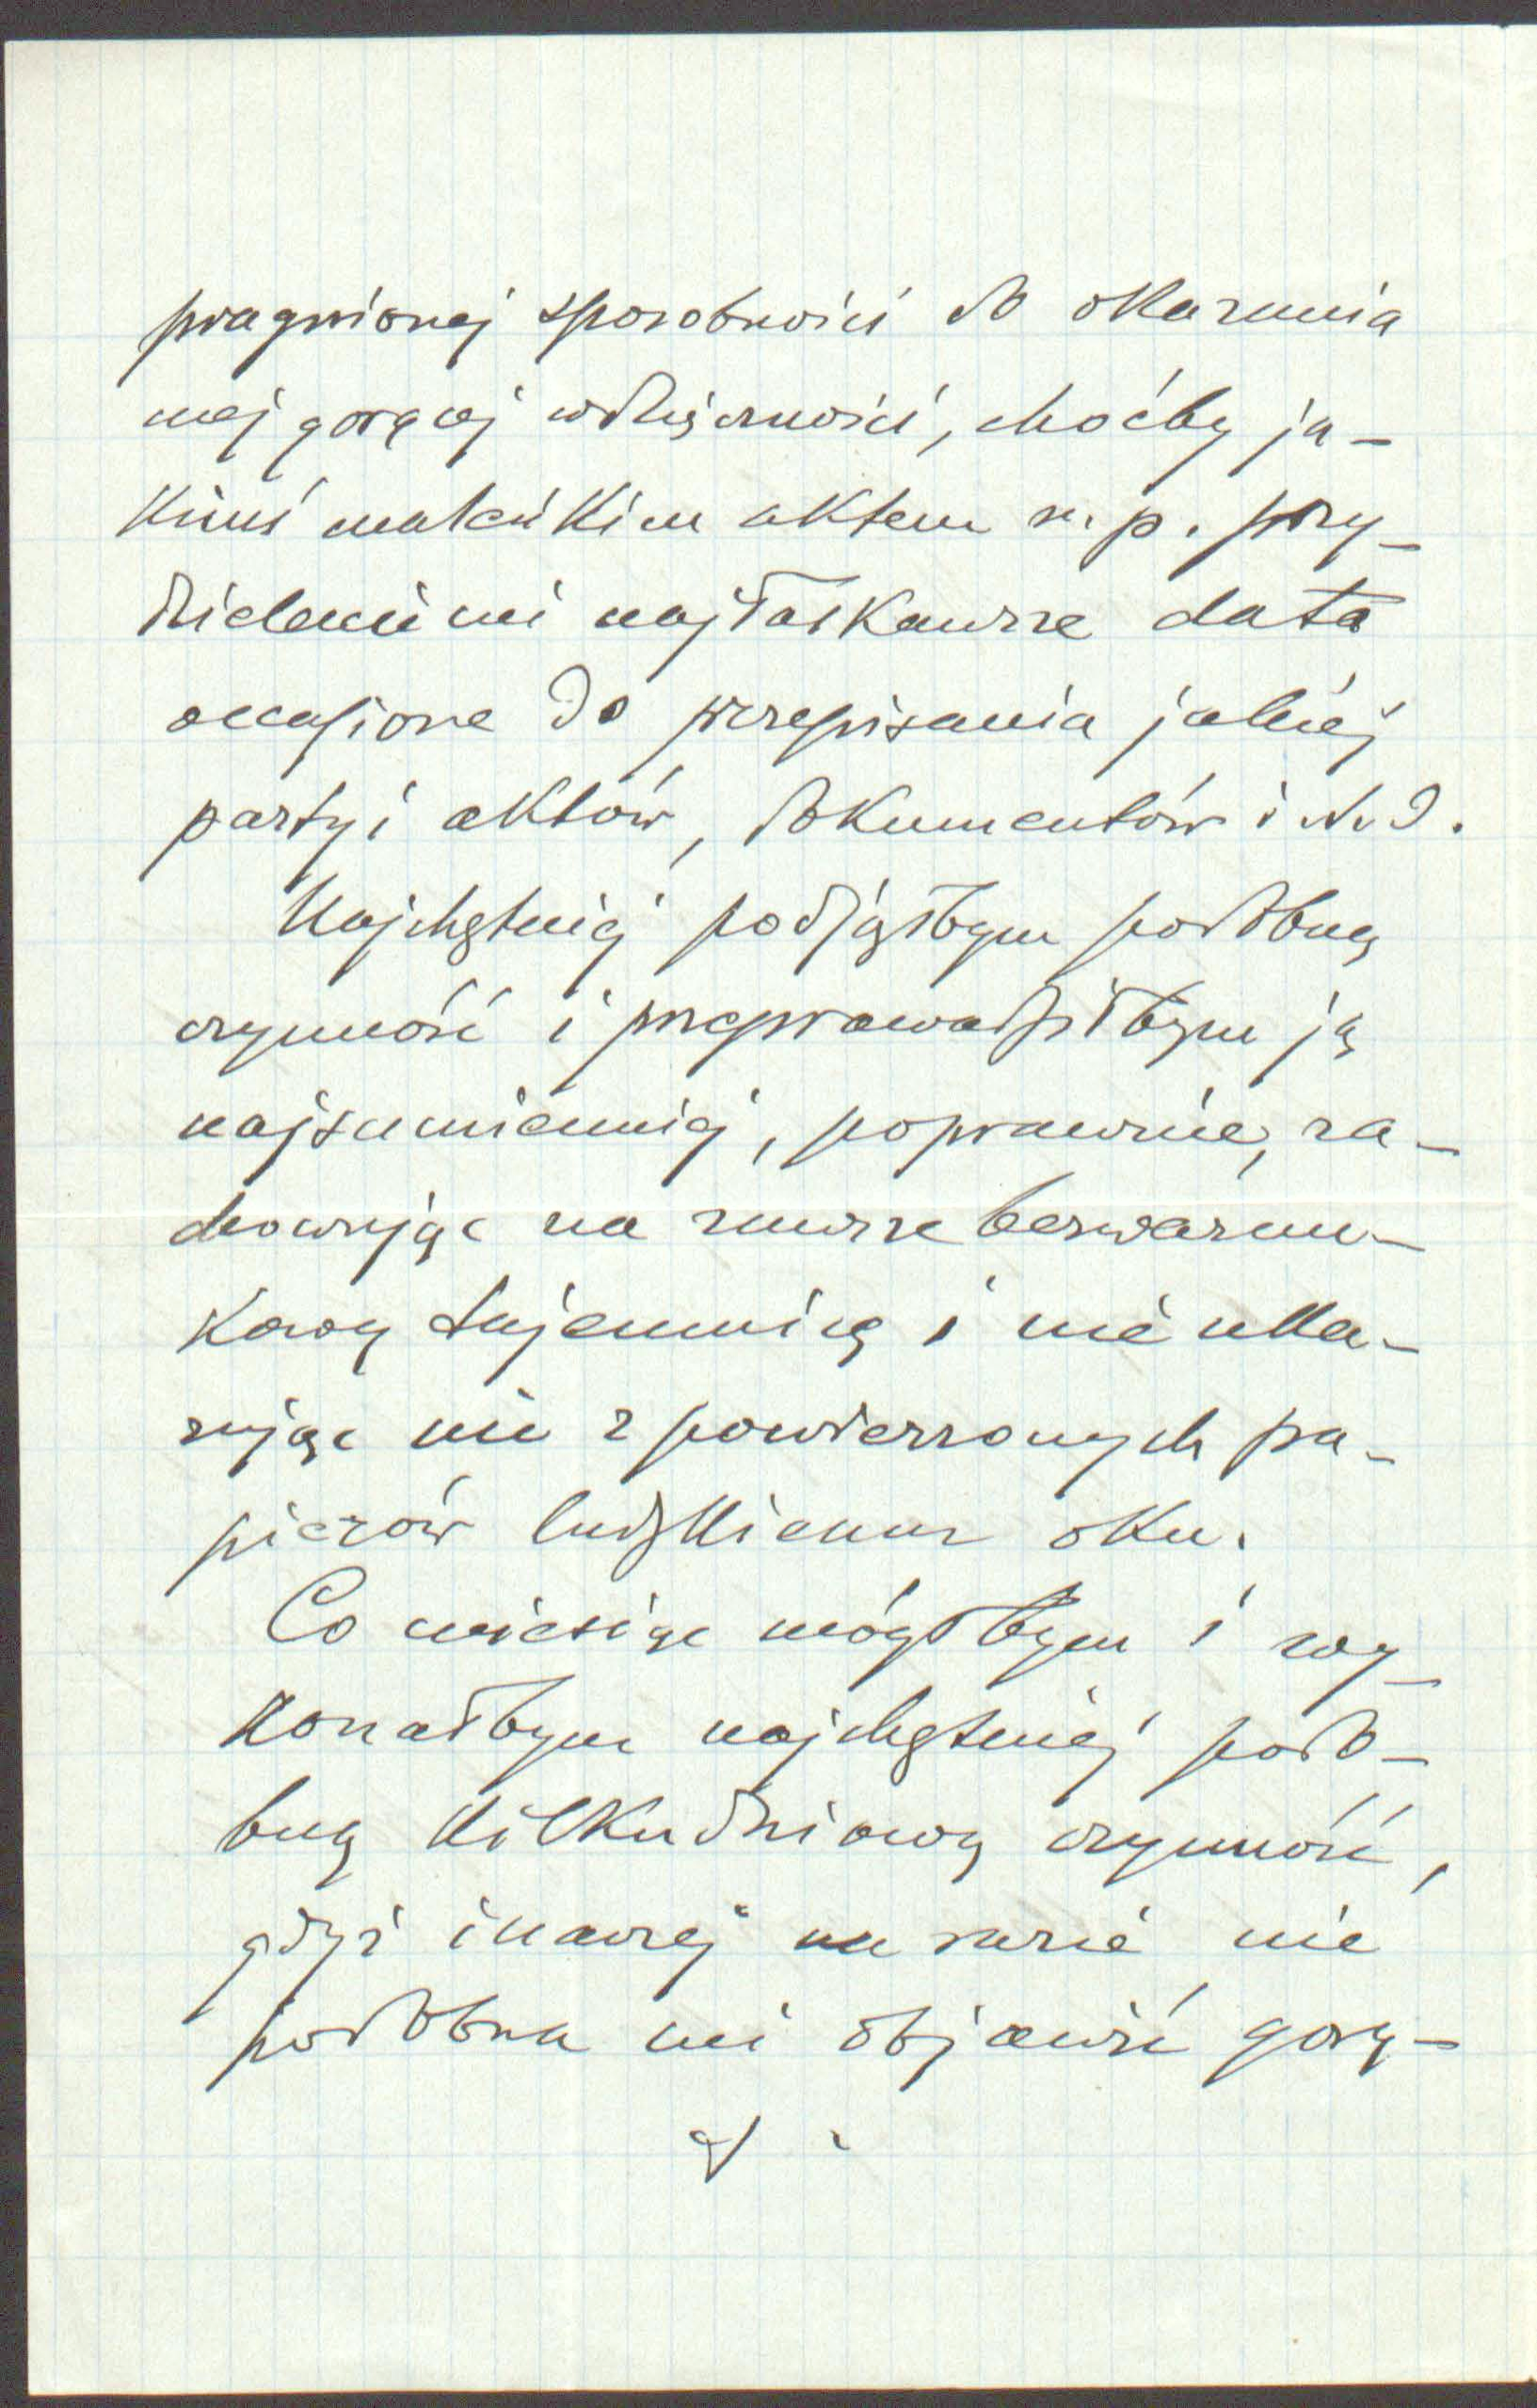 pragnionej sposobności do okazania
mej gorącej wdzięczności, choćby ja-
kimś maleńkim aktem n. p. przy-
dzieleniem najłaskawsze data
occasione do przepisania jakiej
partyi aktów, dokumentów i t. d.
Najchętniej podjąłbym podobną
czynność i przeprowadziłbym ją
najsumienniej, poprawnie, za-
chowując na zawsze bezwarun-
kową tajemnicę i nie uka-
zując nic z powierzonych pa-
pierów ludzkiemu oku.
Co miesiąc mógłbym i wy-
konałbym najchętniej podo-
bną kilkudniową czynność,
gdyż inaczej na razie nie
podobna mi objawić gorą-